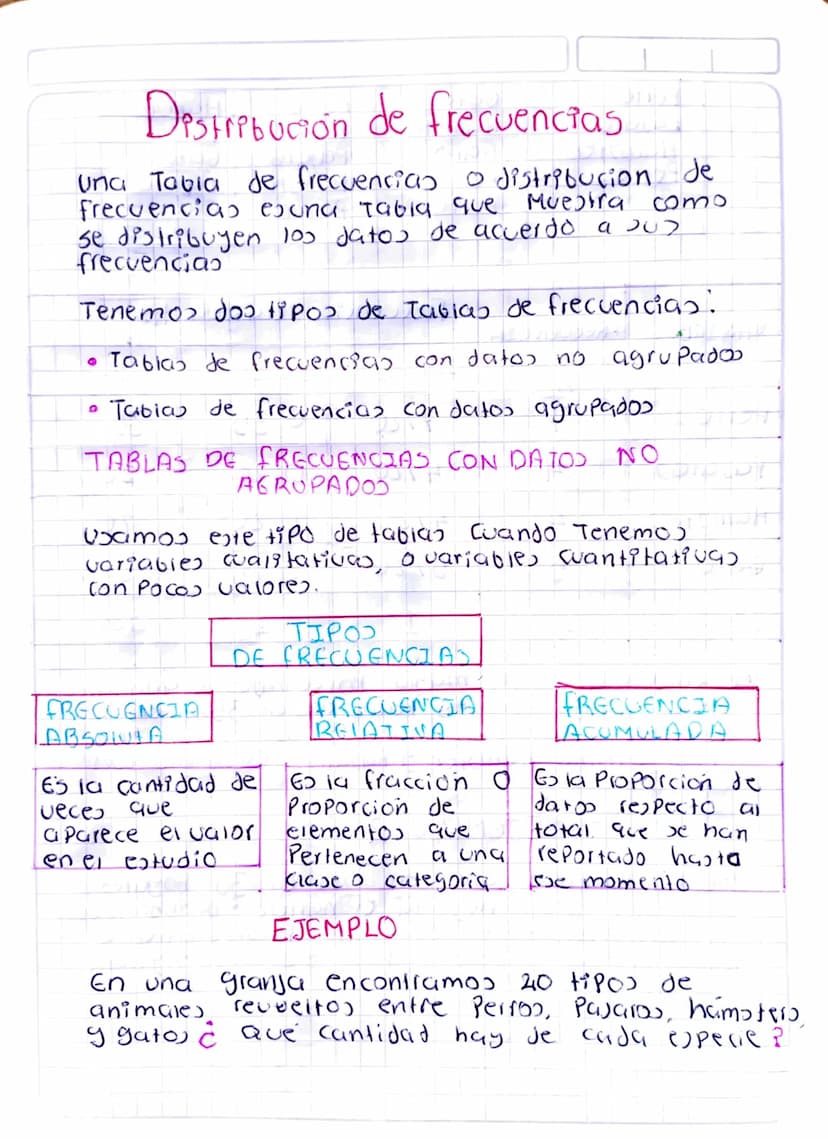 Distribución de frecuencias
una Tabla de frecuencias o distribucion de
frecuencias es una Tabla que Muestra como
se distribuyen los datos de acuerdo a sus
frecuencias
Tenemos dos tipos de Tablas de frecuencias:
• Tablas de frecuencias con datos no agrupados
• Tablas de frecuencias con datos agrupados
TABLAS DE FRECUENCIAS CON DATOS NO
AGRUPADOS
Usamos este tipo de tablas Cuando Tenemos
variables cualitativas, o variables cuantitativas
con pocos valores.
TIPOS
DE FRECUENCIAS
FRECUENCIA
ABSOLUTA
Es la cantidad de
veces que
aparece el valor
en el estudio
FRECUENCIA
RELATIVA
Es la fracción o
Proporcion de
elementos que
Pertenecen a una
clase o categoria
FRECUENCIA
ACUMULADA
Es la Proporción de
datos respecto al
total que se han
reportado hasta
ese momento
EJEMPLO
En una granja encontramos 20 tipos de
animales revueltos entre Perros, Pajaros, hámsters
y gatos ¿ qué cantidad hay de cada especie?